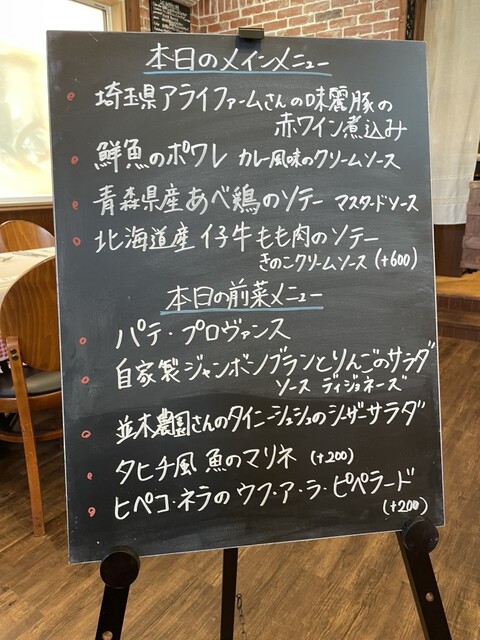 本日のメインメニュー
埼玉県アライファームさんの味麗豚の
赤ワイン煮込み
鮮魚のポワレ カレー風味のクリームソース
青森県産あべ鶏のソテー マスタードソース
北海道産仔牛もも肉のソテー
きのこクリームソース (+600)
本日の前菜メニュー
パテ・プロヴァンス
自家製ジャンボンブランとりんごのサラダ
ソース ディジョネーズ
並木農園さんのタイニーシュシュのシーザーサラダ
タヒチ風 魚のマリネ (+200)
ヒペコ・ネラの ウフ・ア・ラ・ピペラード
(+200)